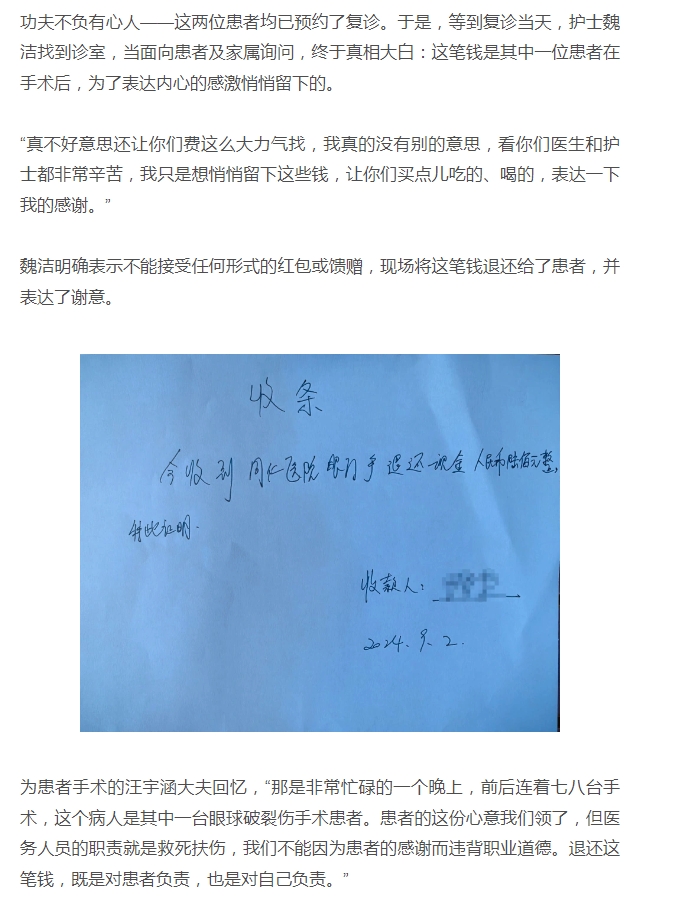 功夫不负有心人——这两位患者均已预约了复诊。于是，等到复诊当天，护士魏
洁找到诊室，当面向患者及家属询问，终于真相大白：这笔钱是其中一位患者在
手术后，为了表达内心的感激悄悄留下的。
“真不好意思还让你们费这么大力气找，我真的没有别的意思，看你们医生和护
士都非常辛苦，我只是想悄悄留下这些钱，让你们买点儿吃的、喝的，表达一下
我的感谢。”
魏洁明确表示不能接受任何形式的红包或馈赠，现场将这笔钱退还给了患者，并
表达了谢意。
收条
今收到 同仁医院眼门手 退还现金 人民币陆佰元整，
特此证明.
收款人：
2024.9.2.
为患者手术的汪宇涵大夫回忆，“那是非常忙碌的一个晚上，前后连着七八台手
术，这个病人是其中一台眼球破裂伤手术患者。患者的这份心意我们领了，但医
务人员的职责就是救死扶伤，我们不能因为患者的感谢而违背职业道德。退还这
笔钱，既是对患者负责，也是对自己负责。”